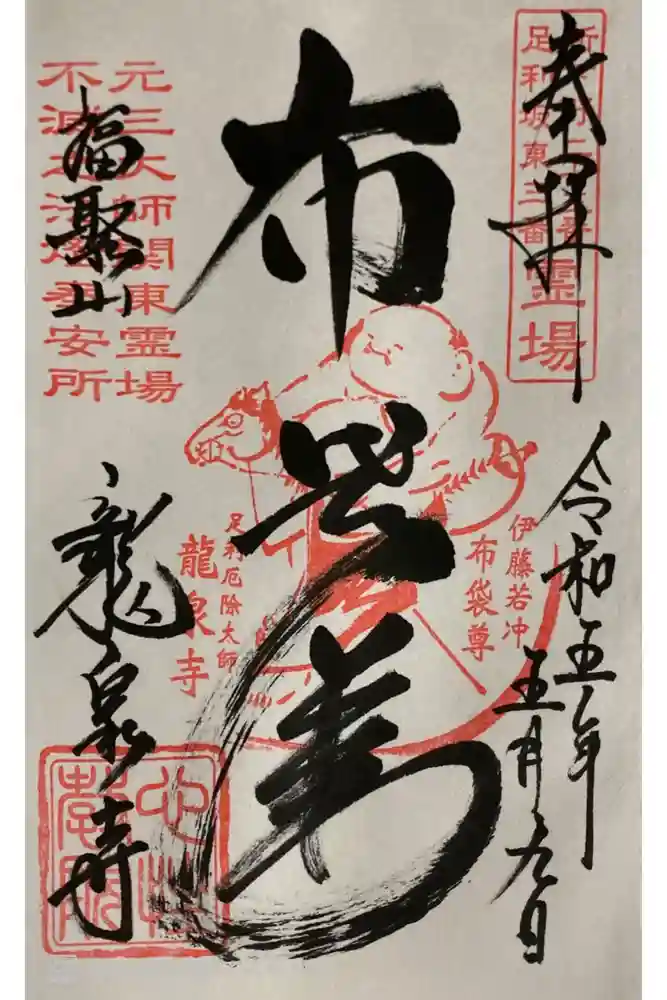 奉拝
足利坂東三番
霊場
令和五年
五月九日
布袋尊
伊藤若冲
布袋尊
足利厄除大師
龍泉寺
元三大師関東霊場
不滅之法燈奉安所
福聚山
龍泉寺